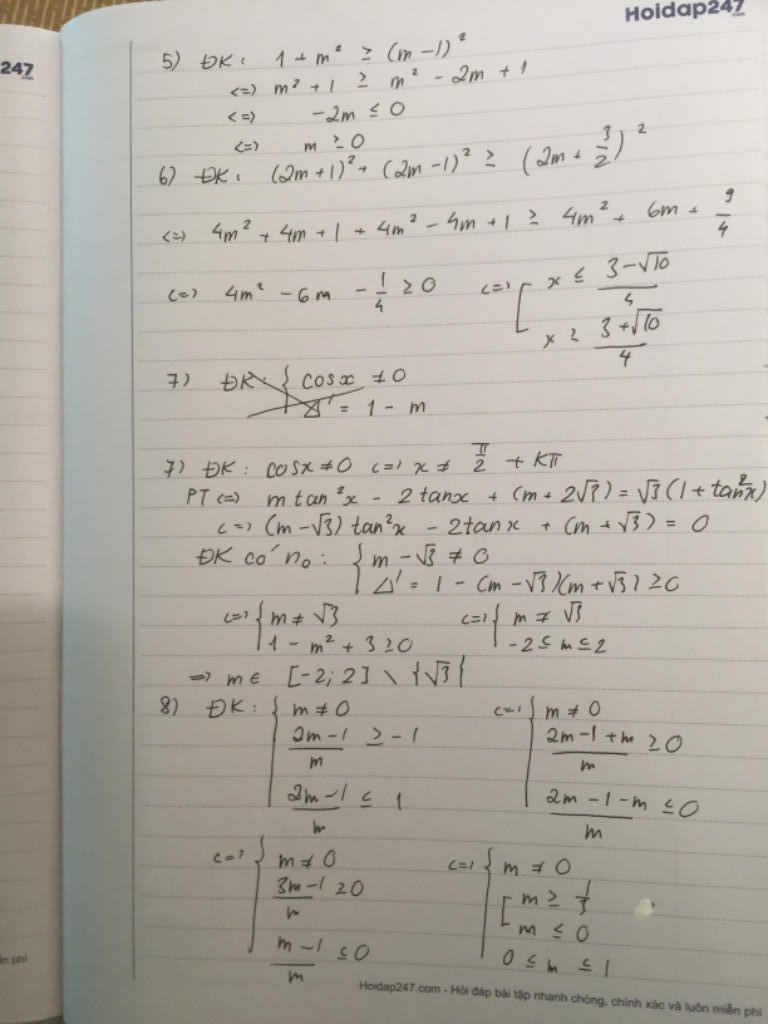 Hoidap247.com
247.com
5) ĐK: 1 + m² ≥ (m - 1)²
<=> m² + 1 ≥ m² - 2m + 1
<=> -2m ≤ 0
<=> m ≥ 0
6) ĐK: (2m + 1)² + (2m - 1)² ≥ (2m + 3/2)²
<=> 4m² + 4m + 1 + 4m² - 4m + 1 ≥ 4m² + 6m + 9/4
<=> 4m² - 6m - 1/4 ≥ 0 <=> [ x ≤ (3 - √10)/4
x ≥ (3 + √10)/4
7) ĐK: { cosx ≠ 0
Δ' = 1 - m
7) ĐK: cosx ≠ 0 <=> x ≠ π/2 + kπ
PT <=> m tan²x - 2tanx + (m + 2√3) = √3(1 + tan²x)
<=> (m - √3) tan²x - 2tanx + (m + √3) = 0
ĐK có no: { m - √3 ≠ 0
Δ' = 1 - (m - √3)(m + √3) ≥ 0
<=> { m ≠ √3 <=> { m ≠ √3
1 - m² + 3 ≥ 0 -2 ≤ m ≤ 2
=> m ∈ [-2; 2] \ {√3}
8) ĐK: { m ≠ 0 <=> { m ≠ 0
(2m - 1)/m ≥ -1 (2m - 1 + m)/m ≥ 0
(2m - 1)/m ≤ 1 (2m - 1 - m)/m ≤ 0
<=> { m ≠ 0 <=> { m ≠ 0
(3m - 1)/m ≥ 0 [ m ≥ 1/3
m ≤ 0
(m - 1)/m ≤ 0 0 ≤ m ≤ 1
ễn phí
Hoidap247.com - Hỏi đáp bài tập nhanh chóng, chính xác và luôn miễn phí